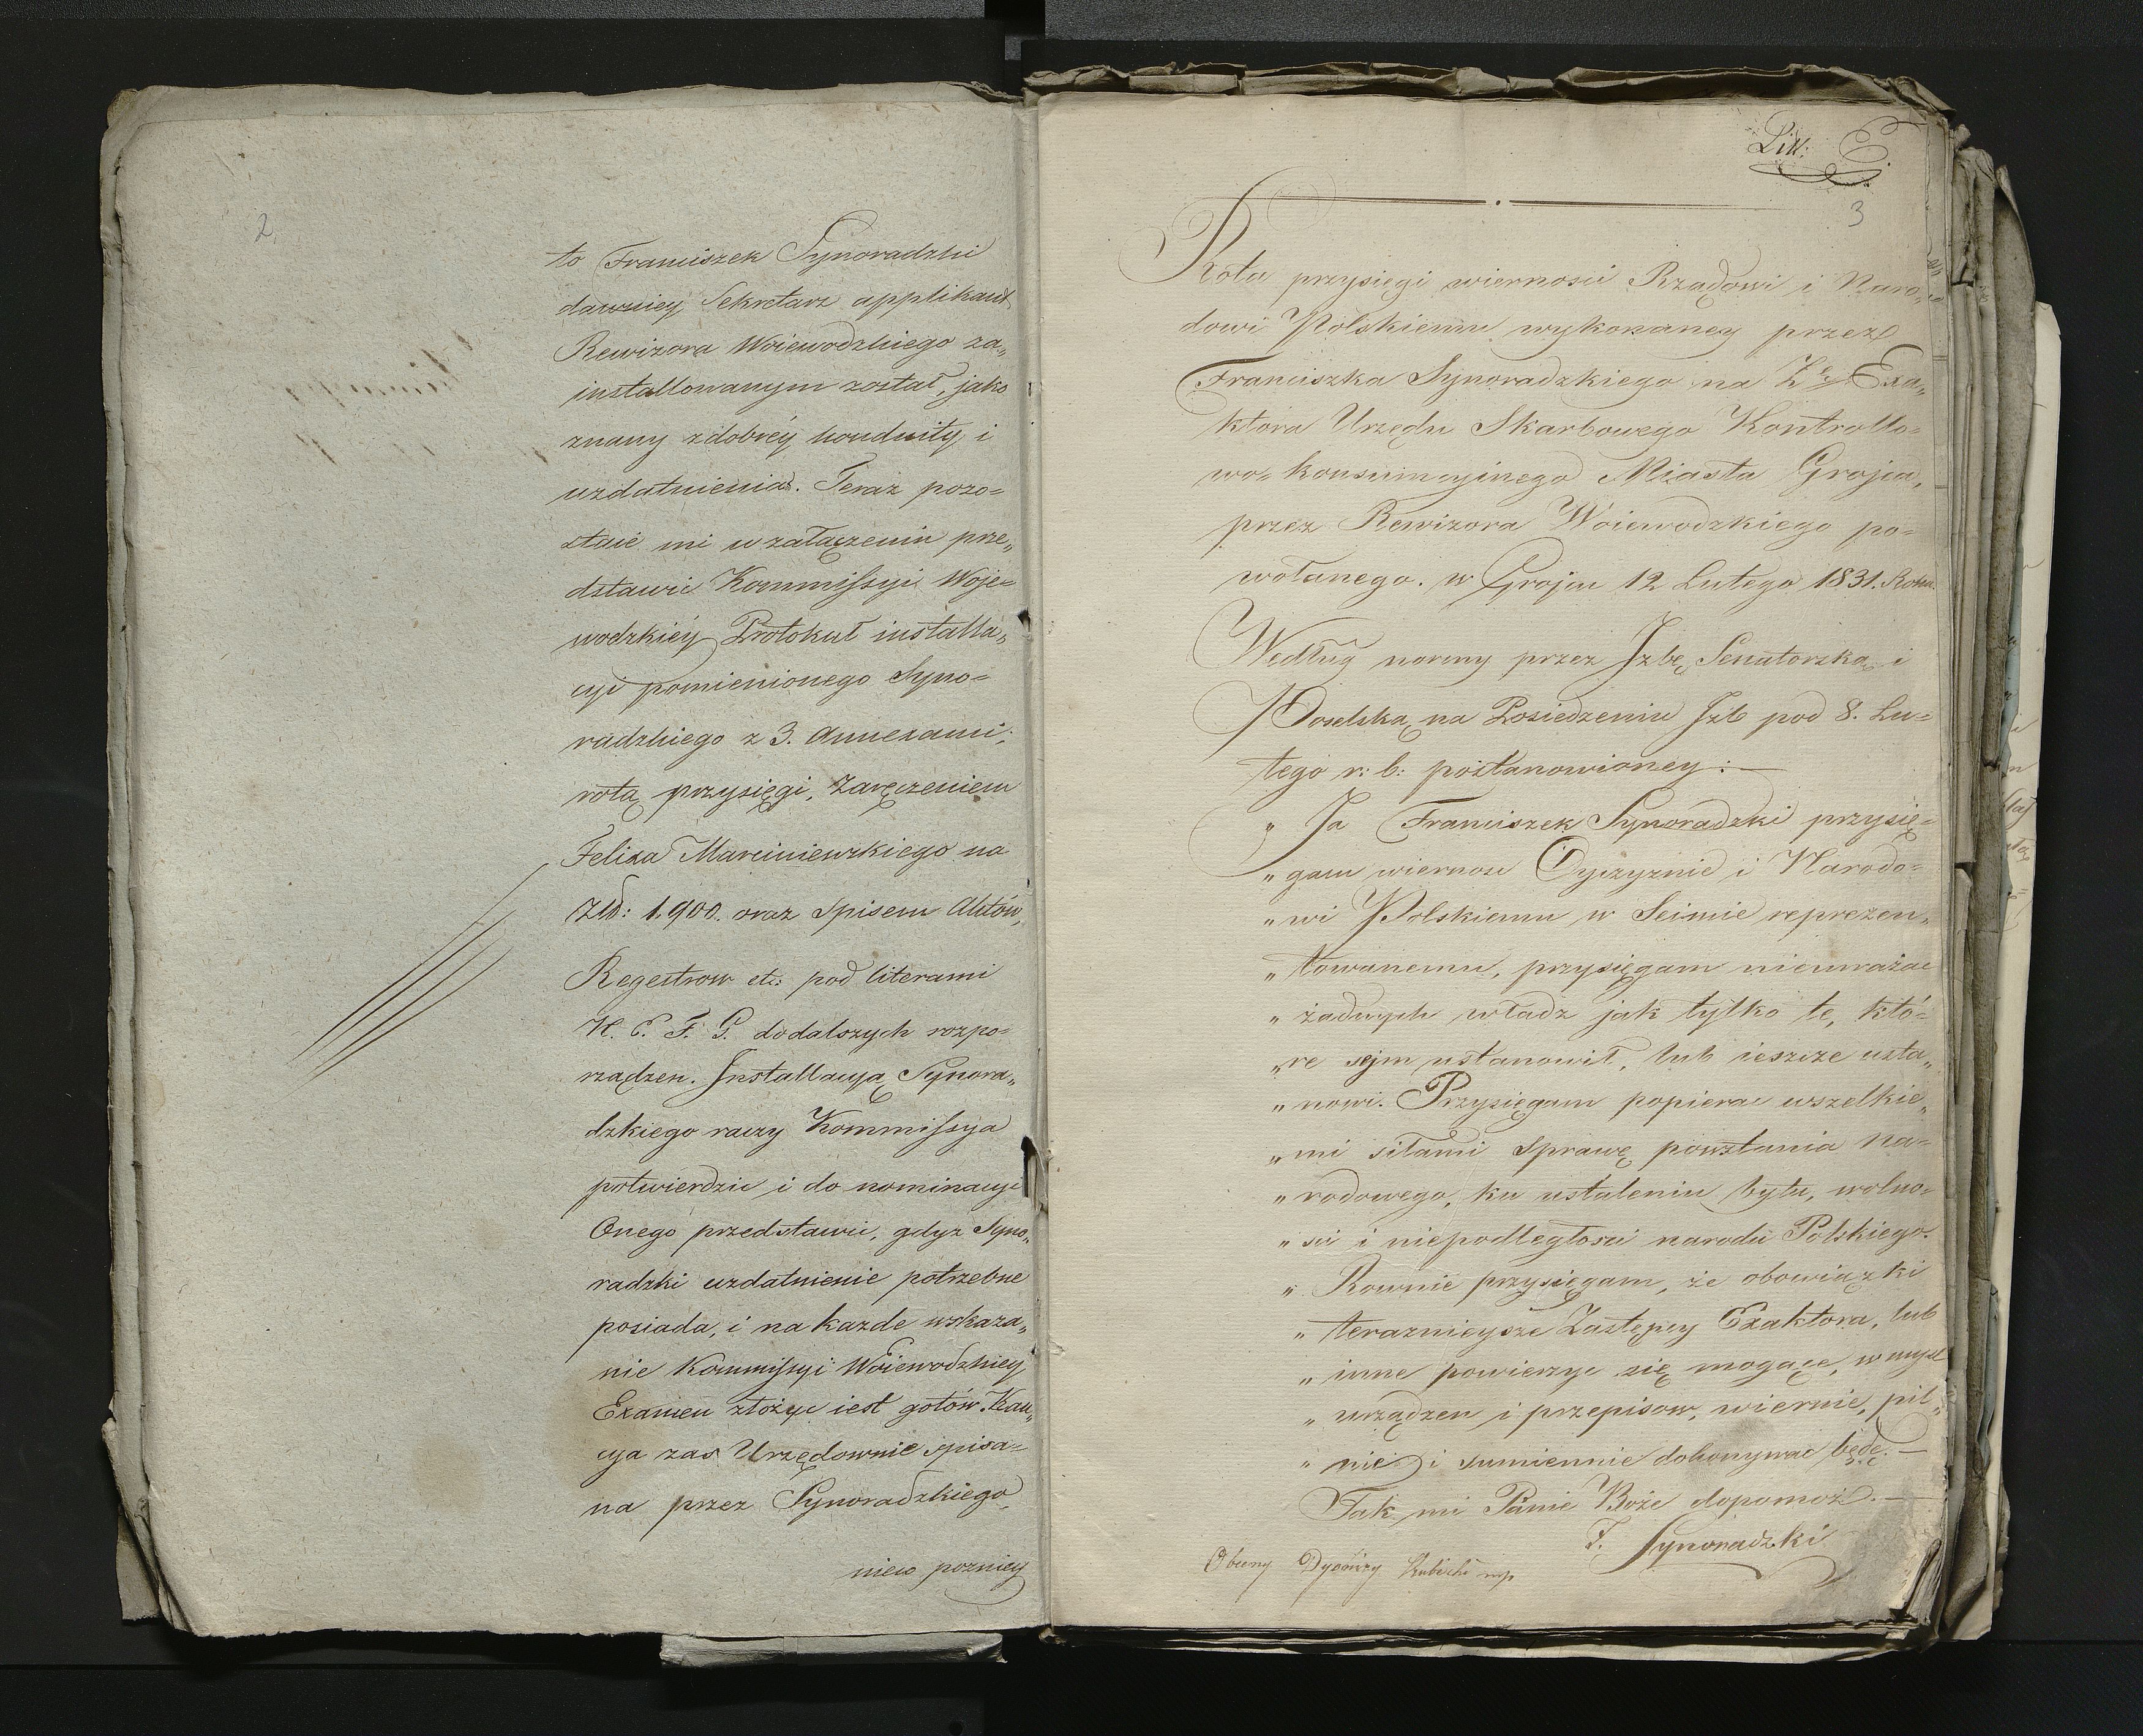 2.
to Franciszek Synoradzki
dawniey Sekretarz applikant
Rewizora Woiewodzkiego za„
installowanym został, jako
znany z dobréy konduity i
uzdatnienia. Teraz pozo=
staie mi w załączeniu prze„
dstawic Kommissyi Woje=
wodzkiéy Protokuł installa„
cyi pomienionego Syno=
radzkiego z 3. Annexami;
rotą przysięgi, Zaręczeniem
Felixa Marciniewskiego na
Złł: 1,900. oraz Spisem Aktów,
Regestrow etc: pod literami
H. E. F. G. do dalszych rozpo=
rządzen. Installacyą Synora„
dzkiego raczy Kommissya
potwierdzic i do nominacyi
Onego przedstawic, gdyz Syno„
radzki uzdatnienie potrzebne
posiada, i na kazde wskaza„
nie Kommissyi Woiewodzkiey
Examen złożyc iest gotów. Kau„
cya zas Urzędownie spisa=
na przez Synoradzkiego
nieco pozniey
Litt: E.
3
Rota przysięgi wiernosci Rządowi i Naro„
dowi Polskiemu wykonaney przez
Franciszka Synoradzkiego na Zcę Exa„
ktora Urzędu Skarbowego Kontrollo=
wo-konsumcyjnego Miasta Grojca,
przez Rewizora Wóiewodzkiego po=
wołanego. w Grojcu 12 Lutego 1831. Roku
Według normy przez Jzbę Senatorską i
Poselską na Posiedzeniu Jzb pod 8. Lu=
tego r: b: postanowioney: —
„ Ja Franciszek Synoradzki przysię=
„ gam wiernosc Oyczyznie i Narodo=
„ wi Polskiemu w Seimie reprezen„
„ towanemu, przysięgam nieuważac
„ żadnych władz jak tylko te, któ=
„ re sejm ustanowił, lub ieszcze usta„
„ nowi. Przysięgam popierac wszelkie„
„ mi siłami Sprawę powstania na=
„ rodowego, ku ustaleniu bytu, wolno=
„ sci i niepodległosci narodu Polskiego.
„ Rownie przysięgam, że obowiązki
„ teraznieysze Zastępcy Exaktora, lub
„ inne powierzyc się mogące, w mysl
„ urządzen i przepisow, wiernie, pil„
„ nie i sumiennie dokonywac będę. —
Tak mi Panie Boże dopomoż. —
F. Synoradzki
Obecny Dyonizy Kubicki mp